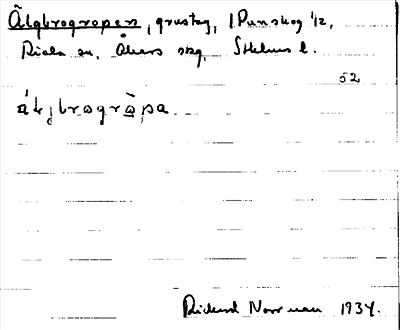 Älgbrogropen, grustag, 1 Punskog 1/2,
Riala sn, Åkers skg, Sthlms l.
52
Rickard Norrman 1934.